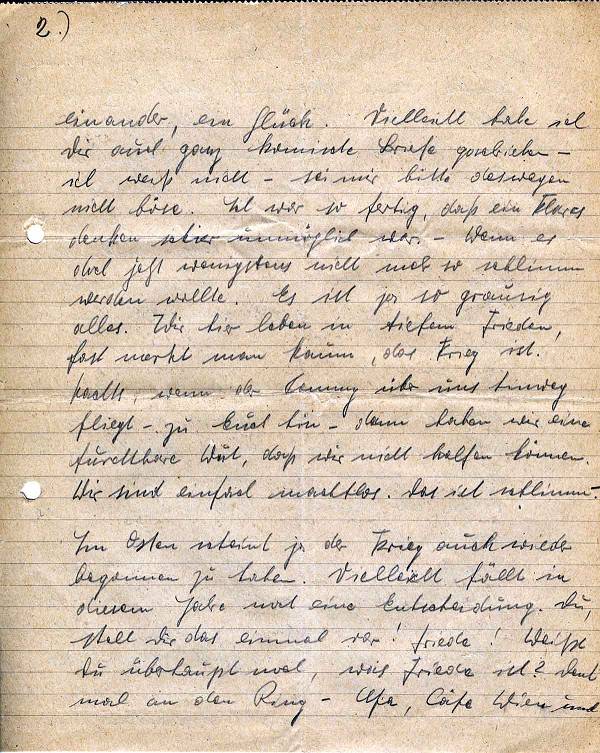 2.)
einander, ein Glück. Vielleicht habe ich
Dir auch ganz komische Briefe geschrieben –
ich weiß nicht – sei mir bitte deswegen
nicht böse. Ich war so fertig, daß ein klares
denken schier unmöglich war. – Wenn es
doch jetzt wenigstens nicht mehr so schlimm
werden wollte. Es ist ja so grausig
alles. Wir hier leben in tiefem Frieden,
fast merkt man kaum, das Krieg ist.
Nachts wenn der Tommy über uns hinweg
fliegt – zu Euch hin – dann haben wir eine
furchtbare Wut, daß wir nicht helfen können.
Wir sind einfach machtlos. Das ist schlimm.
Im Osten scheint ja der Krieg auch wieder
begonnen zu haben. Vielleicht fällt in
diesem Jahre noch eine Entscheidung. Du,
stell Dir das einmal vor! Friede! Weißt
Du überhaupt noch, was Friede ist? Denk
mal an den Ring – Ufa, Cafe Wien und